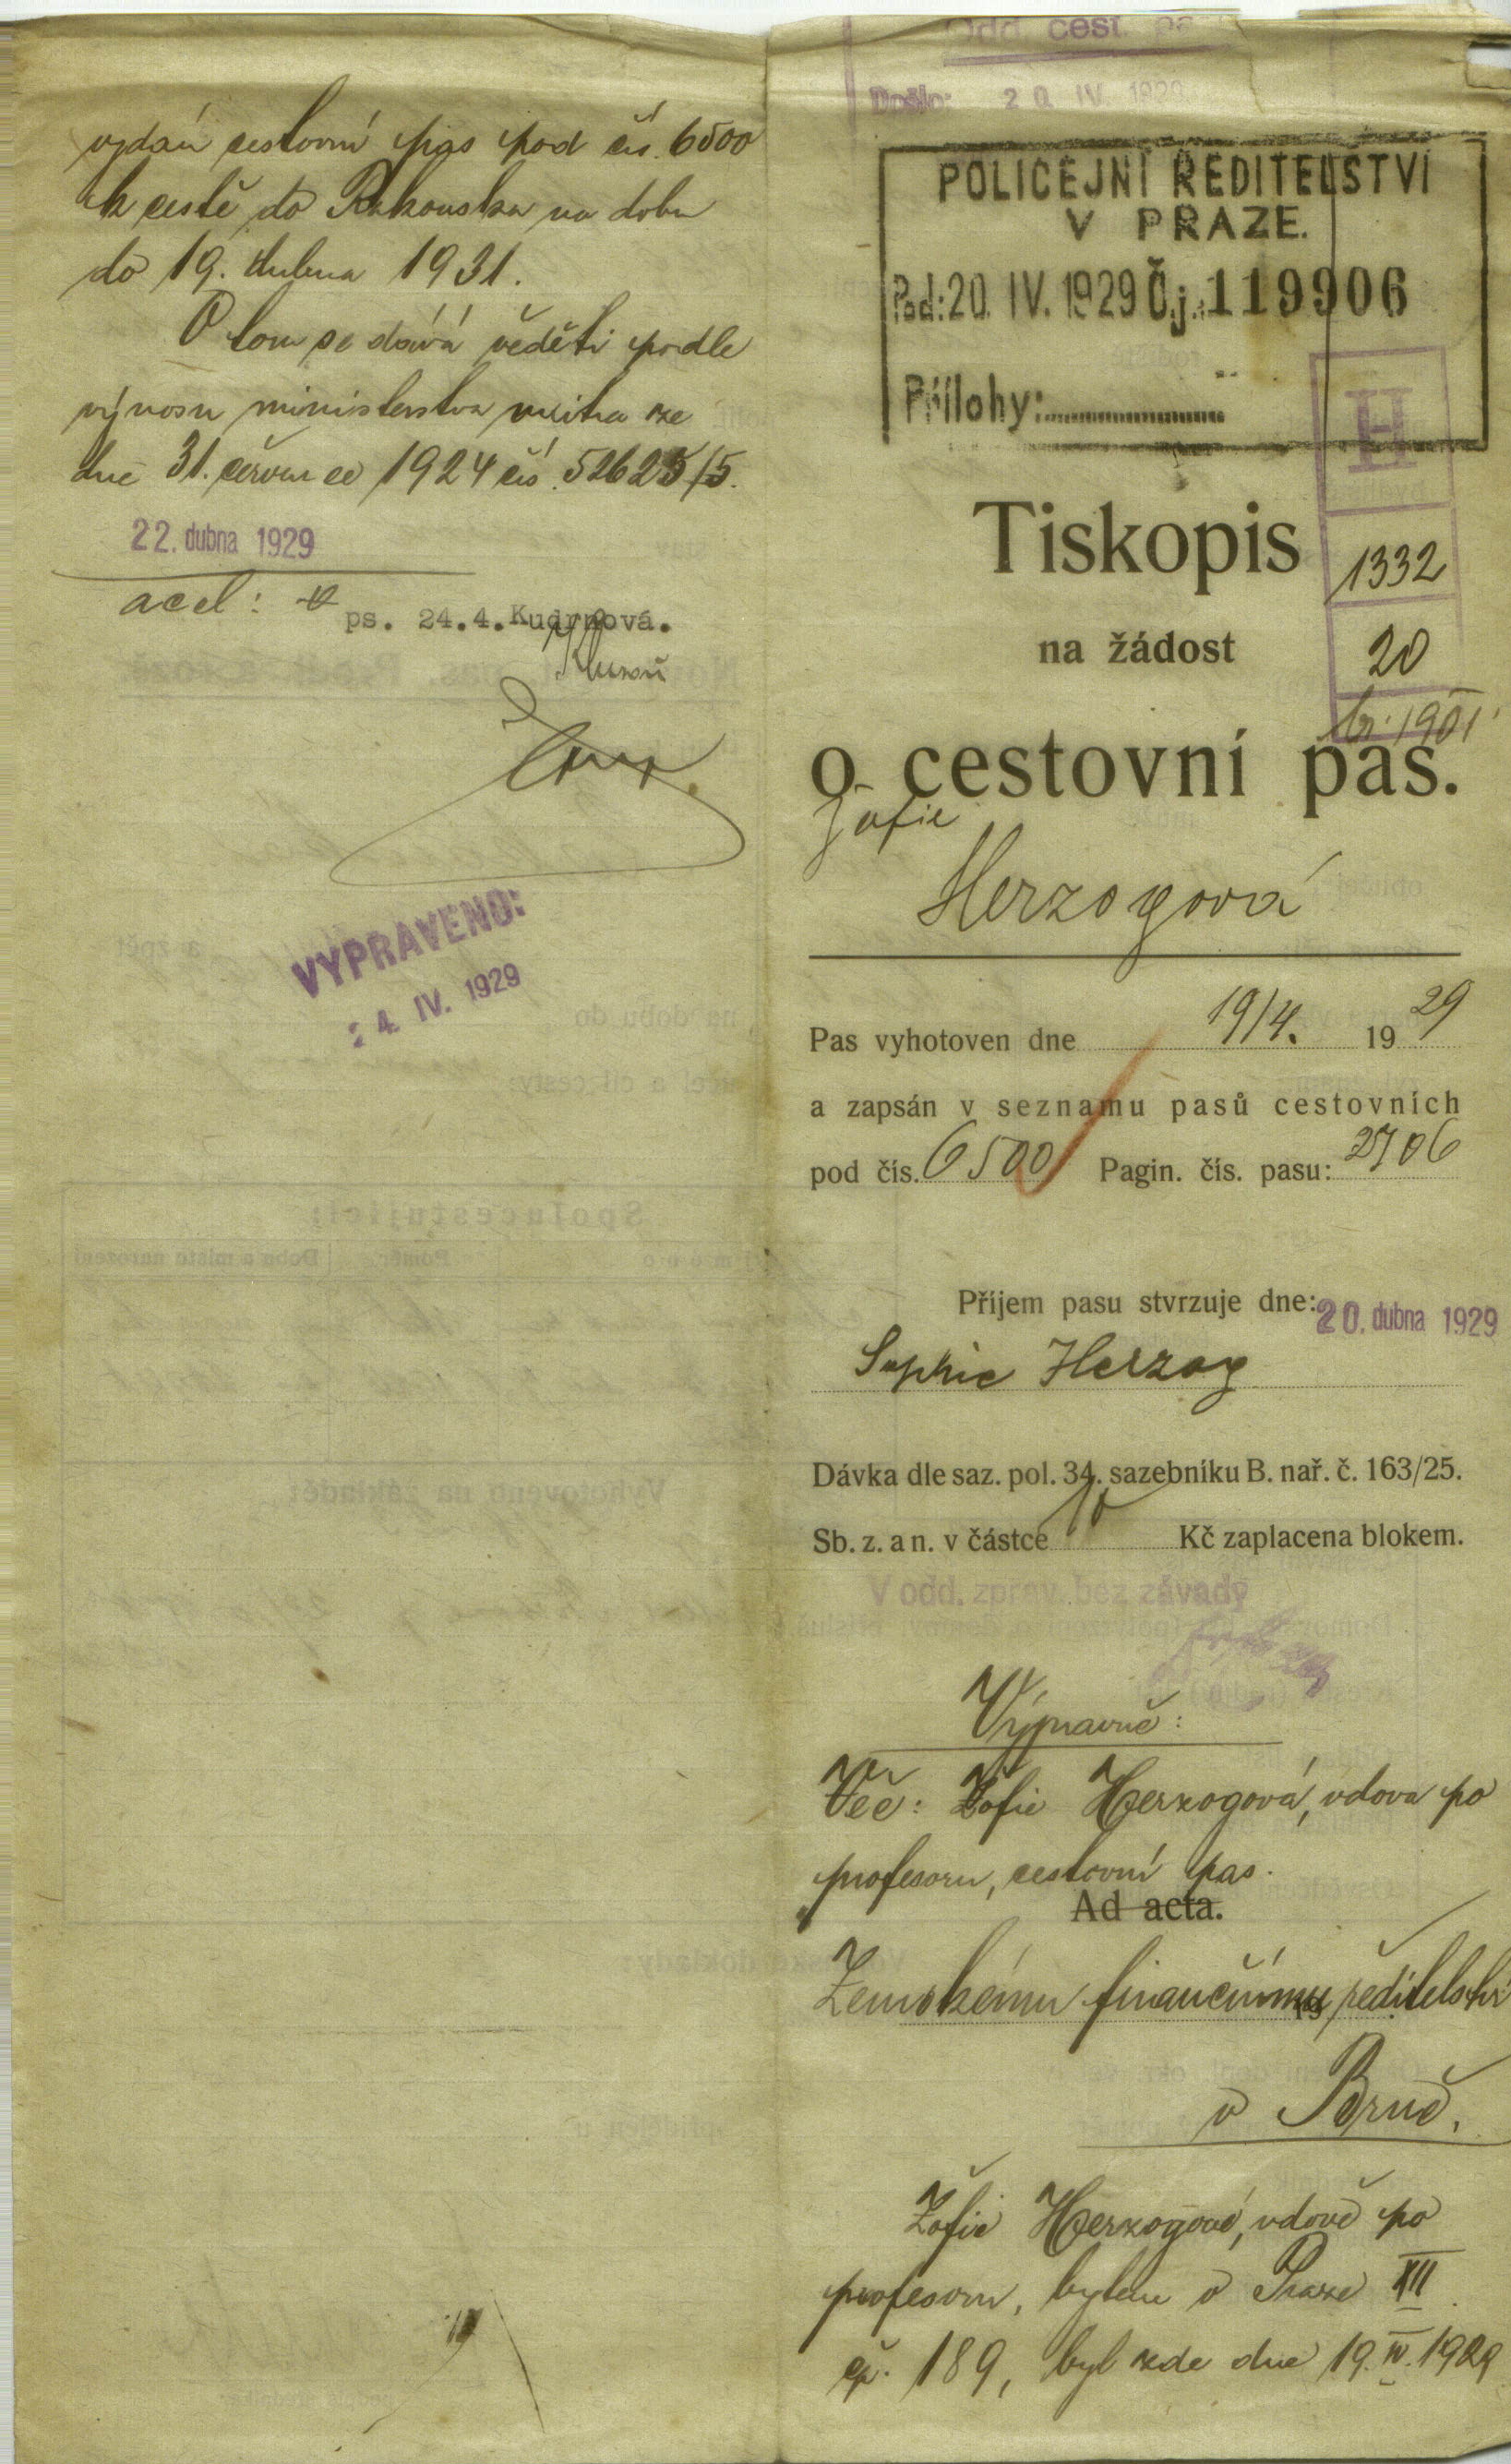 vydán cestovní pas pod čís. 6500
k cestě do Rakouska na dobu
do 19. dubna 1931.
O tom se dává věděti podle
výnosu ministerstva vnitra ze
dne 31. července 1924 čís. 52625/5.
22. dubna 1929
ps. 24.4. Kudrnová.
VYPRAVENO:
24. IV. 1929
Odd. cest. pa
Došlo: 20. IV. 1929
POLICEJNÍ ŘEDITELSTVÍ
V PRAZE.
Pod: 20. IV. 1929 Č.j. 119906
Přílohy:
H
Tiskopis
1332
na žádost
20
1901
o cestovní pas.
Žofie
Herzogová
Pas vyhotoven dne 19/4. 1929
a zapsán v seznamu pasů cestovních
pod čís. 6500 Pagin. čís. pasu: 2706
Příjem pasu stvrzuje dne: 20. dubna 1929
Sophie Herzog
Dávka dle saz. pol. 34. sazebníku B. nař. č. 163/25.
Sb. z. a n. v částce 10 Kč zaplacena blokem.
V odd. zprav. bez závady
Výpravně:
Věc: Žofie Herzogová, vdova po
profesoru, cestovní pas.
Ad acta.
Zemskému finančnímu ředitelství
v Brně.
Žofii Herzogové, vdově po
profesoru, bytem v Praze XII
čp. 189, byl zde dne 19. IV. 1929